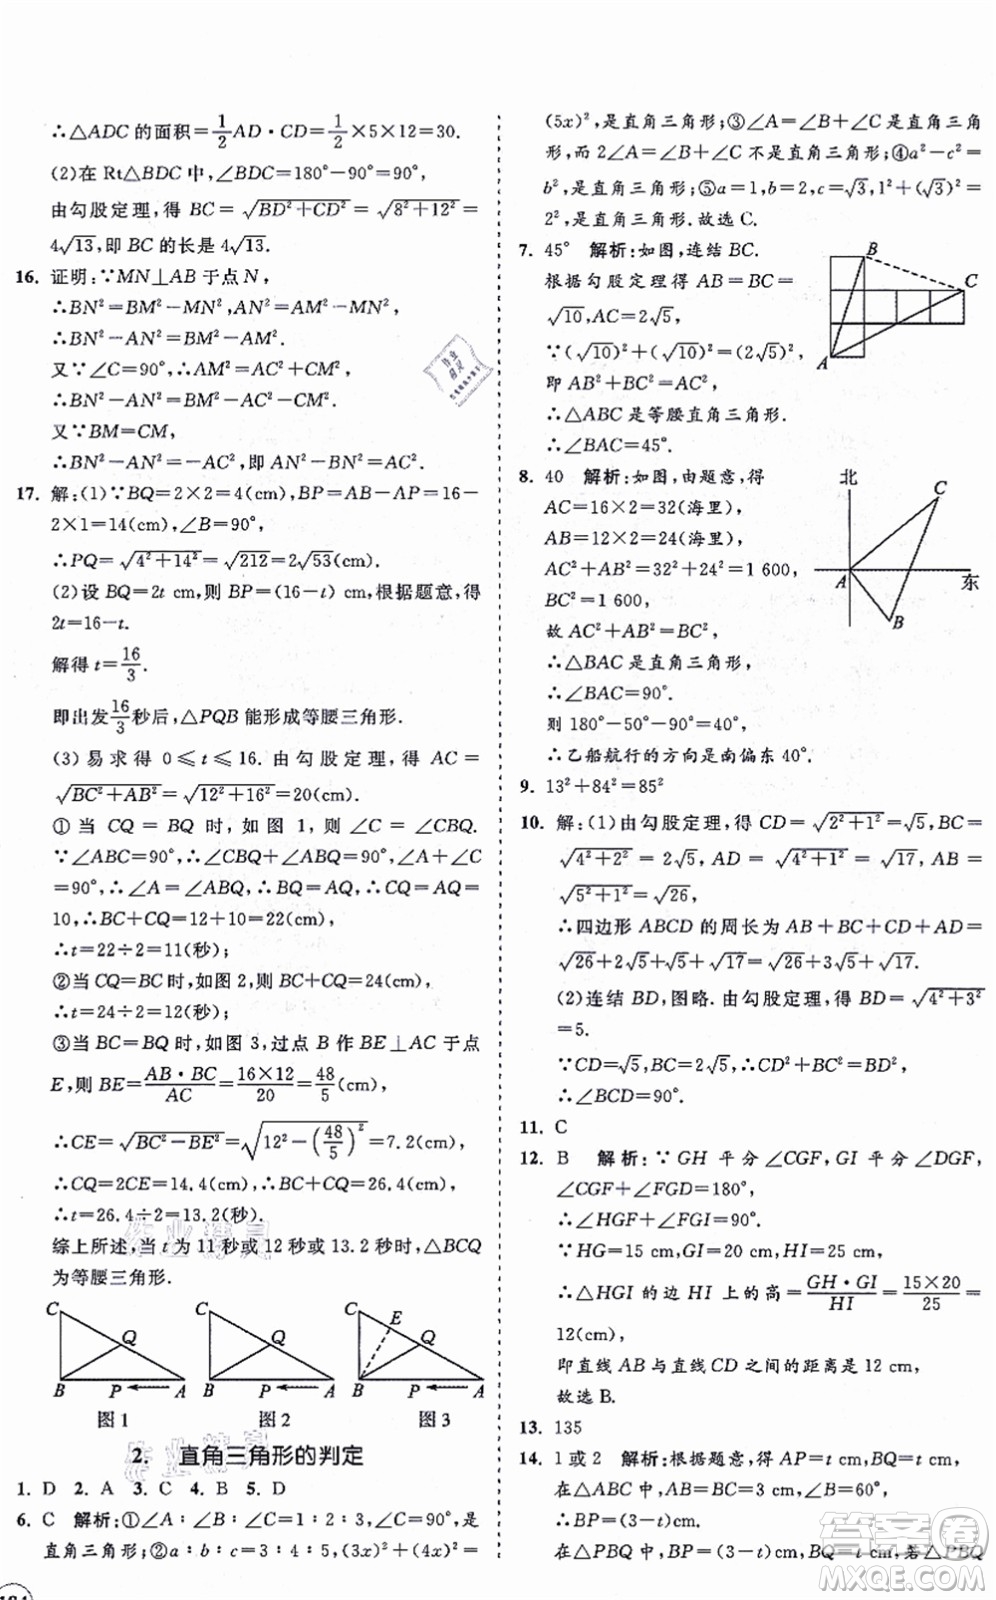 ∴△ADC 的面积=1/2 AD·CD=1/2×5×12=30.
(2)在 Rt△BDC 中,∠BDC=180°-90°=90°,
由勾股定理,得 BC=√(BD²+CD²)=√(8²+12²)=
4√13,即 BC 的长是 4√13.
16. 证明:∵MN⊥AB 于点 N,
∴BN²=BM²-MN²,AN²=AM²-MN²,
∴BN²-AN²=BM²-AM².
又∵∠C=90°,∴AM²=AC²+CM²,
∴BN²-AN²=BM²-AC²-CM².
又∵BM=CM,
∴BN²-AN²=-AC²,即 AN²-BN²=AC².
17. 解:(1)∵BQ=2×2=4(cm),BP=AB-AP=16-
2×1=14(cm),∠B=90°,
∴PQ=√(4²+14²)=√212=2√53(cm).
(2)设 BQ=2t cm,则 BP=(16-t) cm,根据题意,得
2t=16-t.
解得 t=16/3.
即出发16/3秒后,△PQB 能形成等腰三角形.
(3)易求得 0≤t≤16. 由勾股定理,得 AC=
√(BC²+AB²)=√(12²+16²)=20(cm);
①当 CQ=BQ 时,如图 1,则∠C=∠CBQ.
∵∠ABC=90°,∴∠CBQ+∠ABQ=90°,∠A+∠C
=90°,∴∠A=∠ABQ,∴BQ=AQ,∴CQ=AQ=
10,∴BC+CQ=12+10=22(cm),
∴t=22÷2=11(秒);
②当CQ=BC时,如图2,则BC+CQ=24(cm),
∴t=24÷2=12(秒);
③当 BC=BQ 时,如图 3,过点 B 作 BE⊥AC 于点
E,则 BE=AB·BC/AC=16×12/20=48/5(cm),
∴CE=√(BC²-BE²)=√(12²-(48/5)²)=7.2(cm),
∴CQ=2CE=14.4(cm),∴BC+CQ=26.4(cm),
∴t=26.4÷2=13.2(秒).
综上所述,当 t 为 11 秒或 12 秒或 13.2 秒时,△BCQ
为等腰三角形.
C Q B P A
C Q B P A
C E Q B P A
图 1 图 2 图 3
2. 直角三角形的判定
1. D 2. A 3. C 4. B 5. D
6. C 解析:①∠A∶∠B∶∠C=1∶2∶3,∠C=90°,是
直角三角形;②a∶b∶c=3∶4∶5,(3x)²+(4x)²=
(5x)²,是直角三角形;③∠A=∠B+∠C 是直角三角
形,而 2∠A=∠B+∠C 不是直角三角形;④a²-c²=
b²,是直角三角形;⑤a=1,b=2,c=√3,1²+(√3)²=
2²,是直角三角形.故选 C.
7. 45° 解析:如图,连结 BC.
根据勾股定理得 AB=BC=
√10,AC=2√5,
∵(√10)²+(√10)²=(2√5)²,
即 AB²+BC²=AC²,
∴△ABC 是等腰直角三角形.
∴∠BAC=45°.
B
C
A
8. 40 解析:如图,由题意,得
AC=16×2=32(海里),
AB=12×2=24(海里),
AC²+AB²=32²+24²=1 600,
BC²=1 600,
故 AC²+AB²=BC²,
∴△BAC 是直角三角形,
∴∠BAC=90°.
则 180°-50°-90°=40°.
∴乙船航行的方向是南偏东 40°.
北
C
A
东
B
9. 13²+84²=85²
10. 解:(1)由勾股定理,得 CD=√(2²+1²)=√5,BC=
√(4²+2²)=2√5,AD=√(4²+1²)=√17,AB=
√(5²+1²)=√26,
∴四边形 ABCD 的周长为 AB+BC+CD+AD=
√26+2√5+√5+√17=√26+3√5+√17.
(2)连结 BD,图略. 由勾股定理,得 BD=√(4²+3²)
=5.
∵CD=√5,BC=2√5,∴CD²+BC²=BD²,
∴∠BCD=90°.
11. C
12. B 解析:∵GH 平分∠CGF,GI 平分∠DGF,
∠CGF+∠DGF=180°,
∴∠HGF+∠IGF=90°.
∵HG=15 cm,GI=20 cm,HI=25 cm,
∴△HGI 的边 HI 上的高=GH·GI/HI=15×20/25=
12(cm),
即直线 AB 与直线 CD 之间的距离是 12 cm,
故选 B.
13. 135
14. 1 或 2 解析:根据题意,得 AP=t cm,BQ=t cm,
在△ABC 中,AB=BC=3 cm,∠B=60°,
∴BP=(3-t)cm.
在△PBQ 中,BP=(3-t) cm,BQ=t cm,若△PBQ
作业精灵
作业精灵
作业精灵
答案卷
MXQE.COM